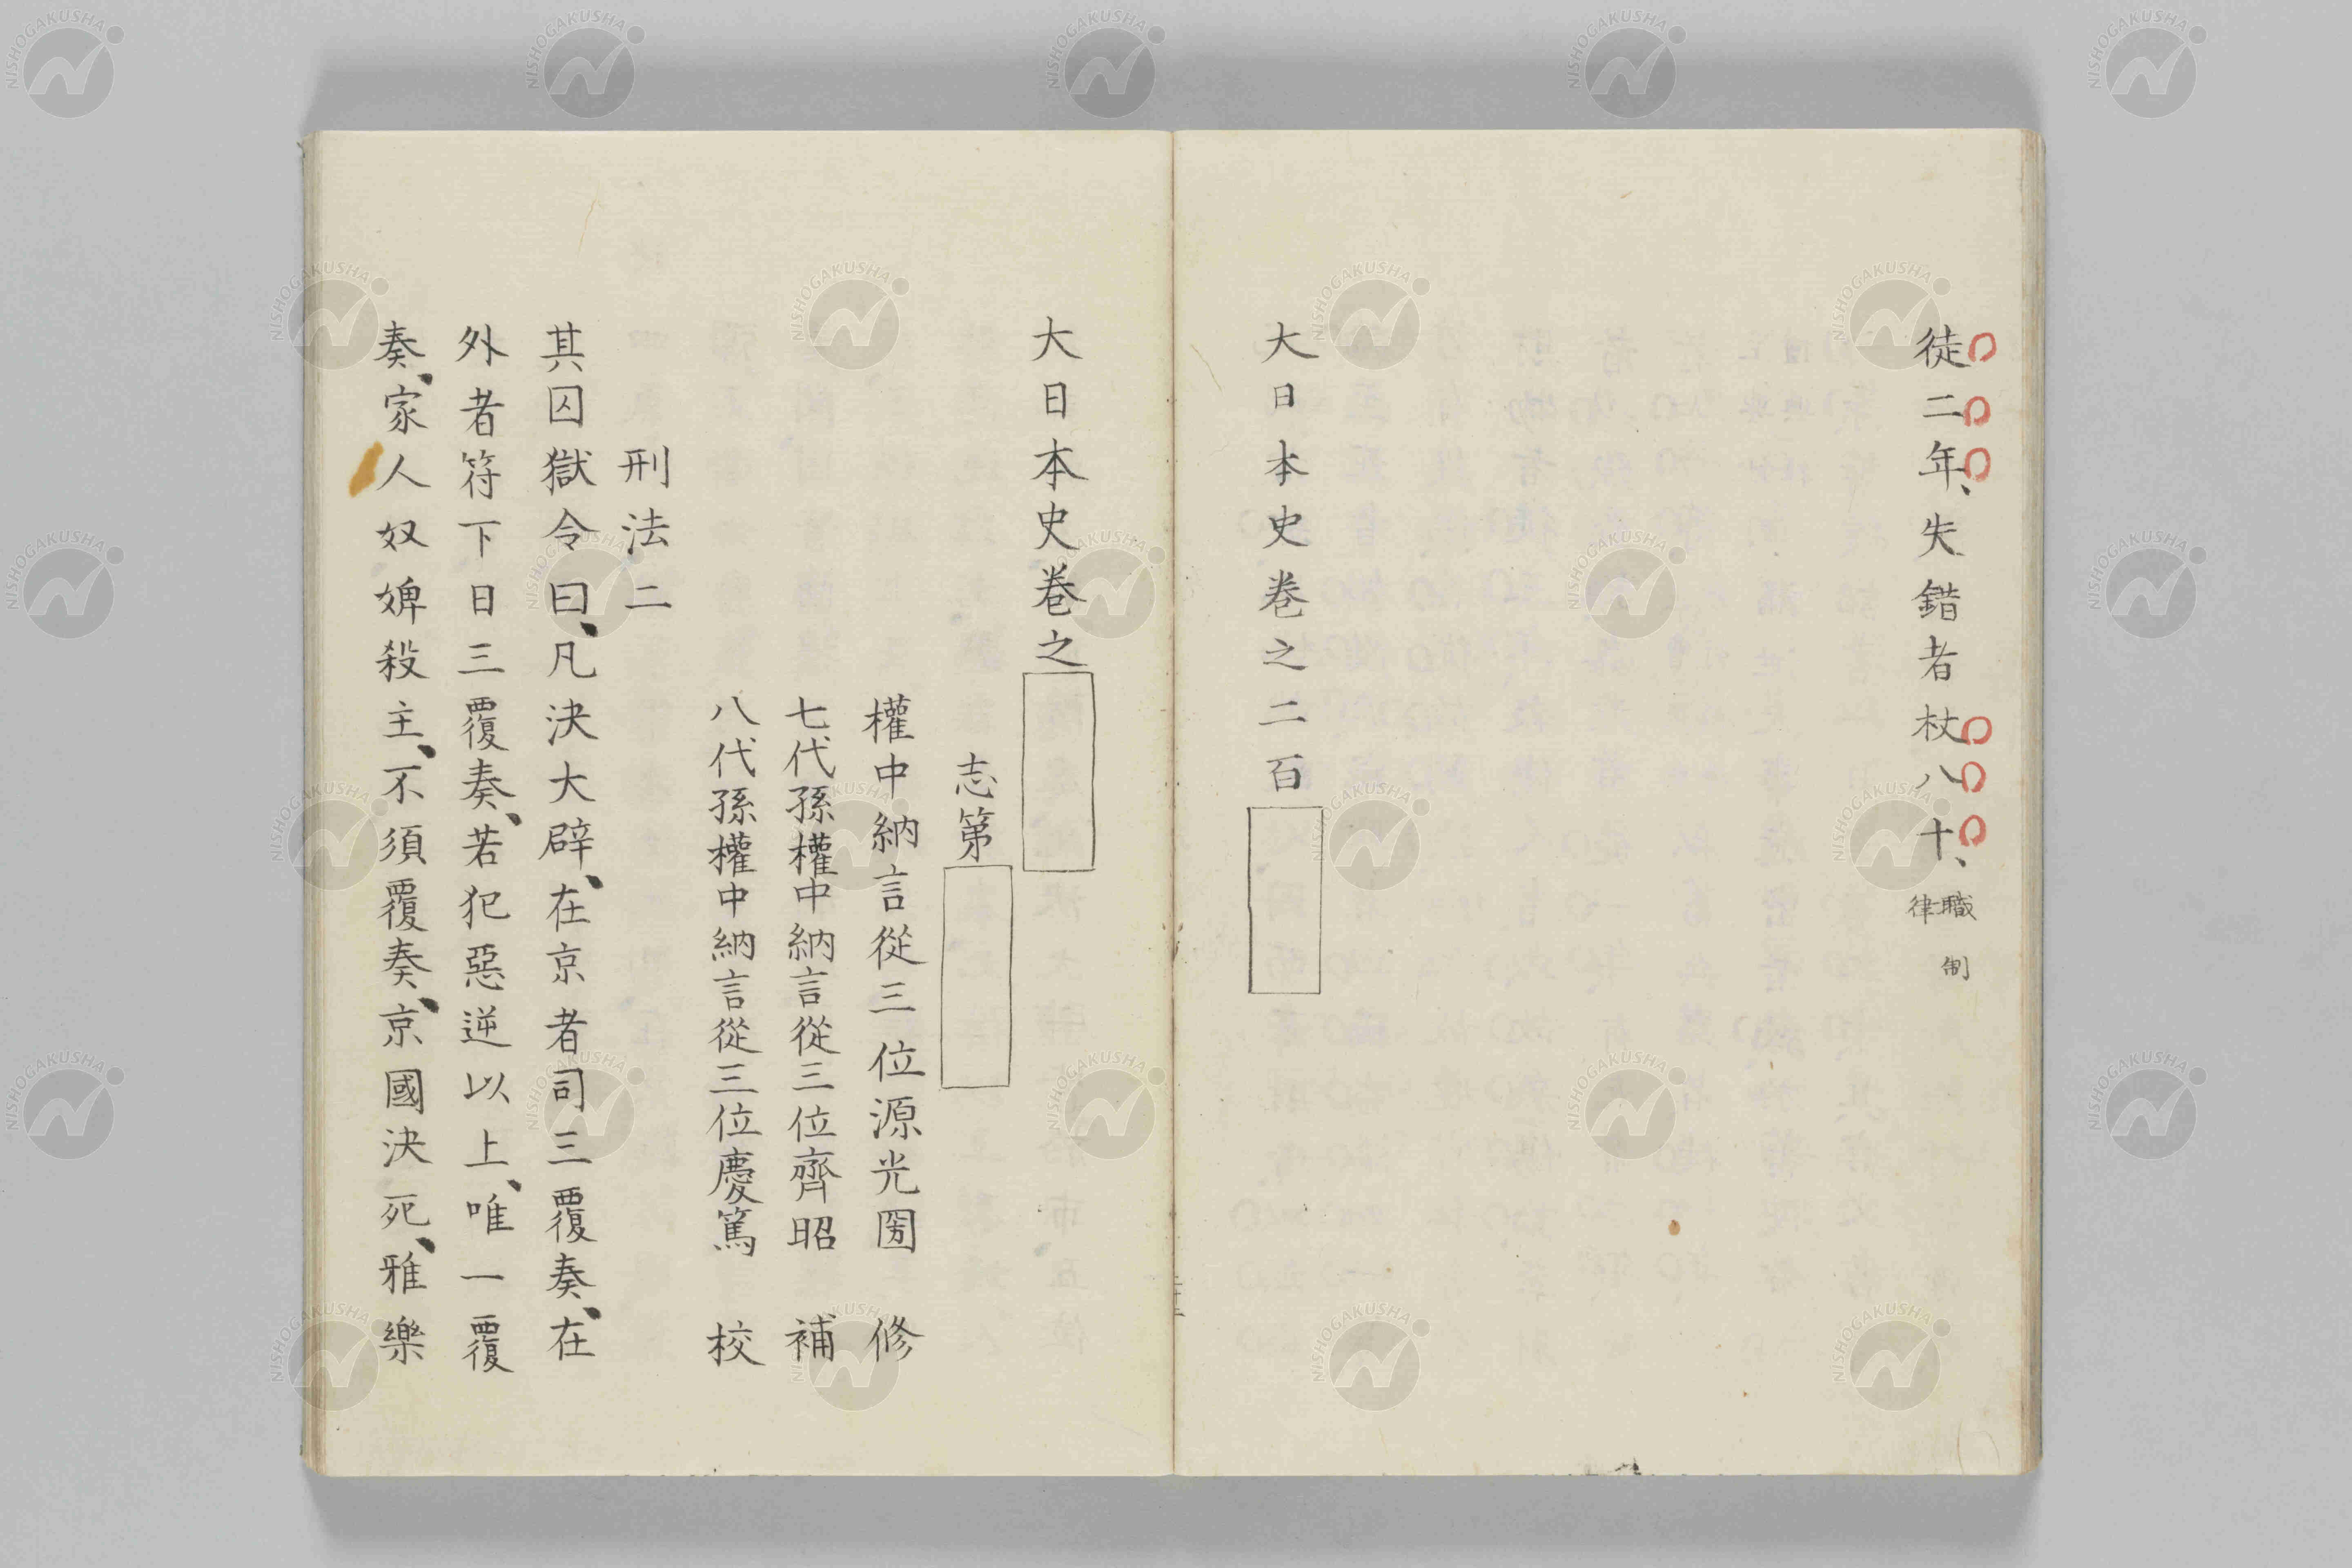 徒二年、失錯者杖八十、職制律
大日本史卷之二百
大日本史卷之
志第
權中納言從三位源光圀 修
七代孫權中納言從三位齊昭 補
八代孫權中納言從三位慶篤 校
刑法二
其囚獄令曰、凡決大辟、在京者司三覆奏、在
外者符下日三覆奏、若犯惡逆以上、唯一覆
奏、家人奴婢殺主、不須覆奏、京國決死、雅樂
NISHOGAKUSHA